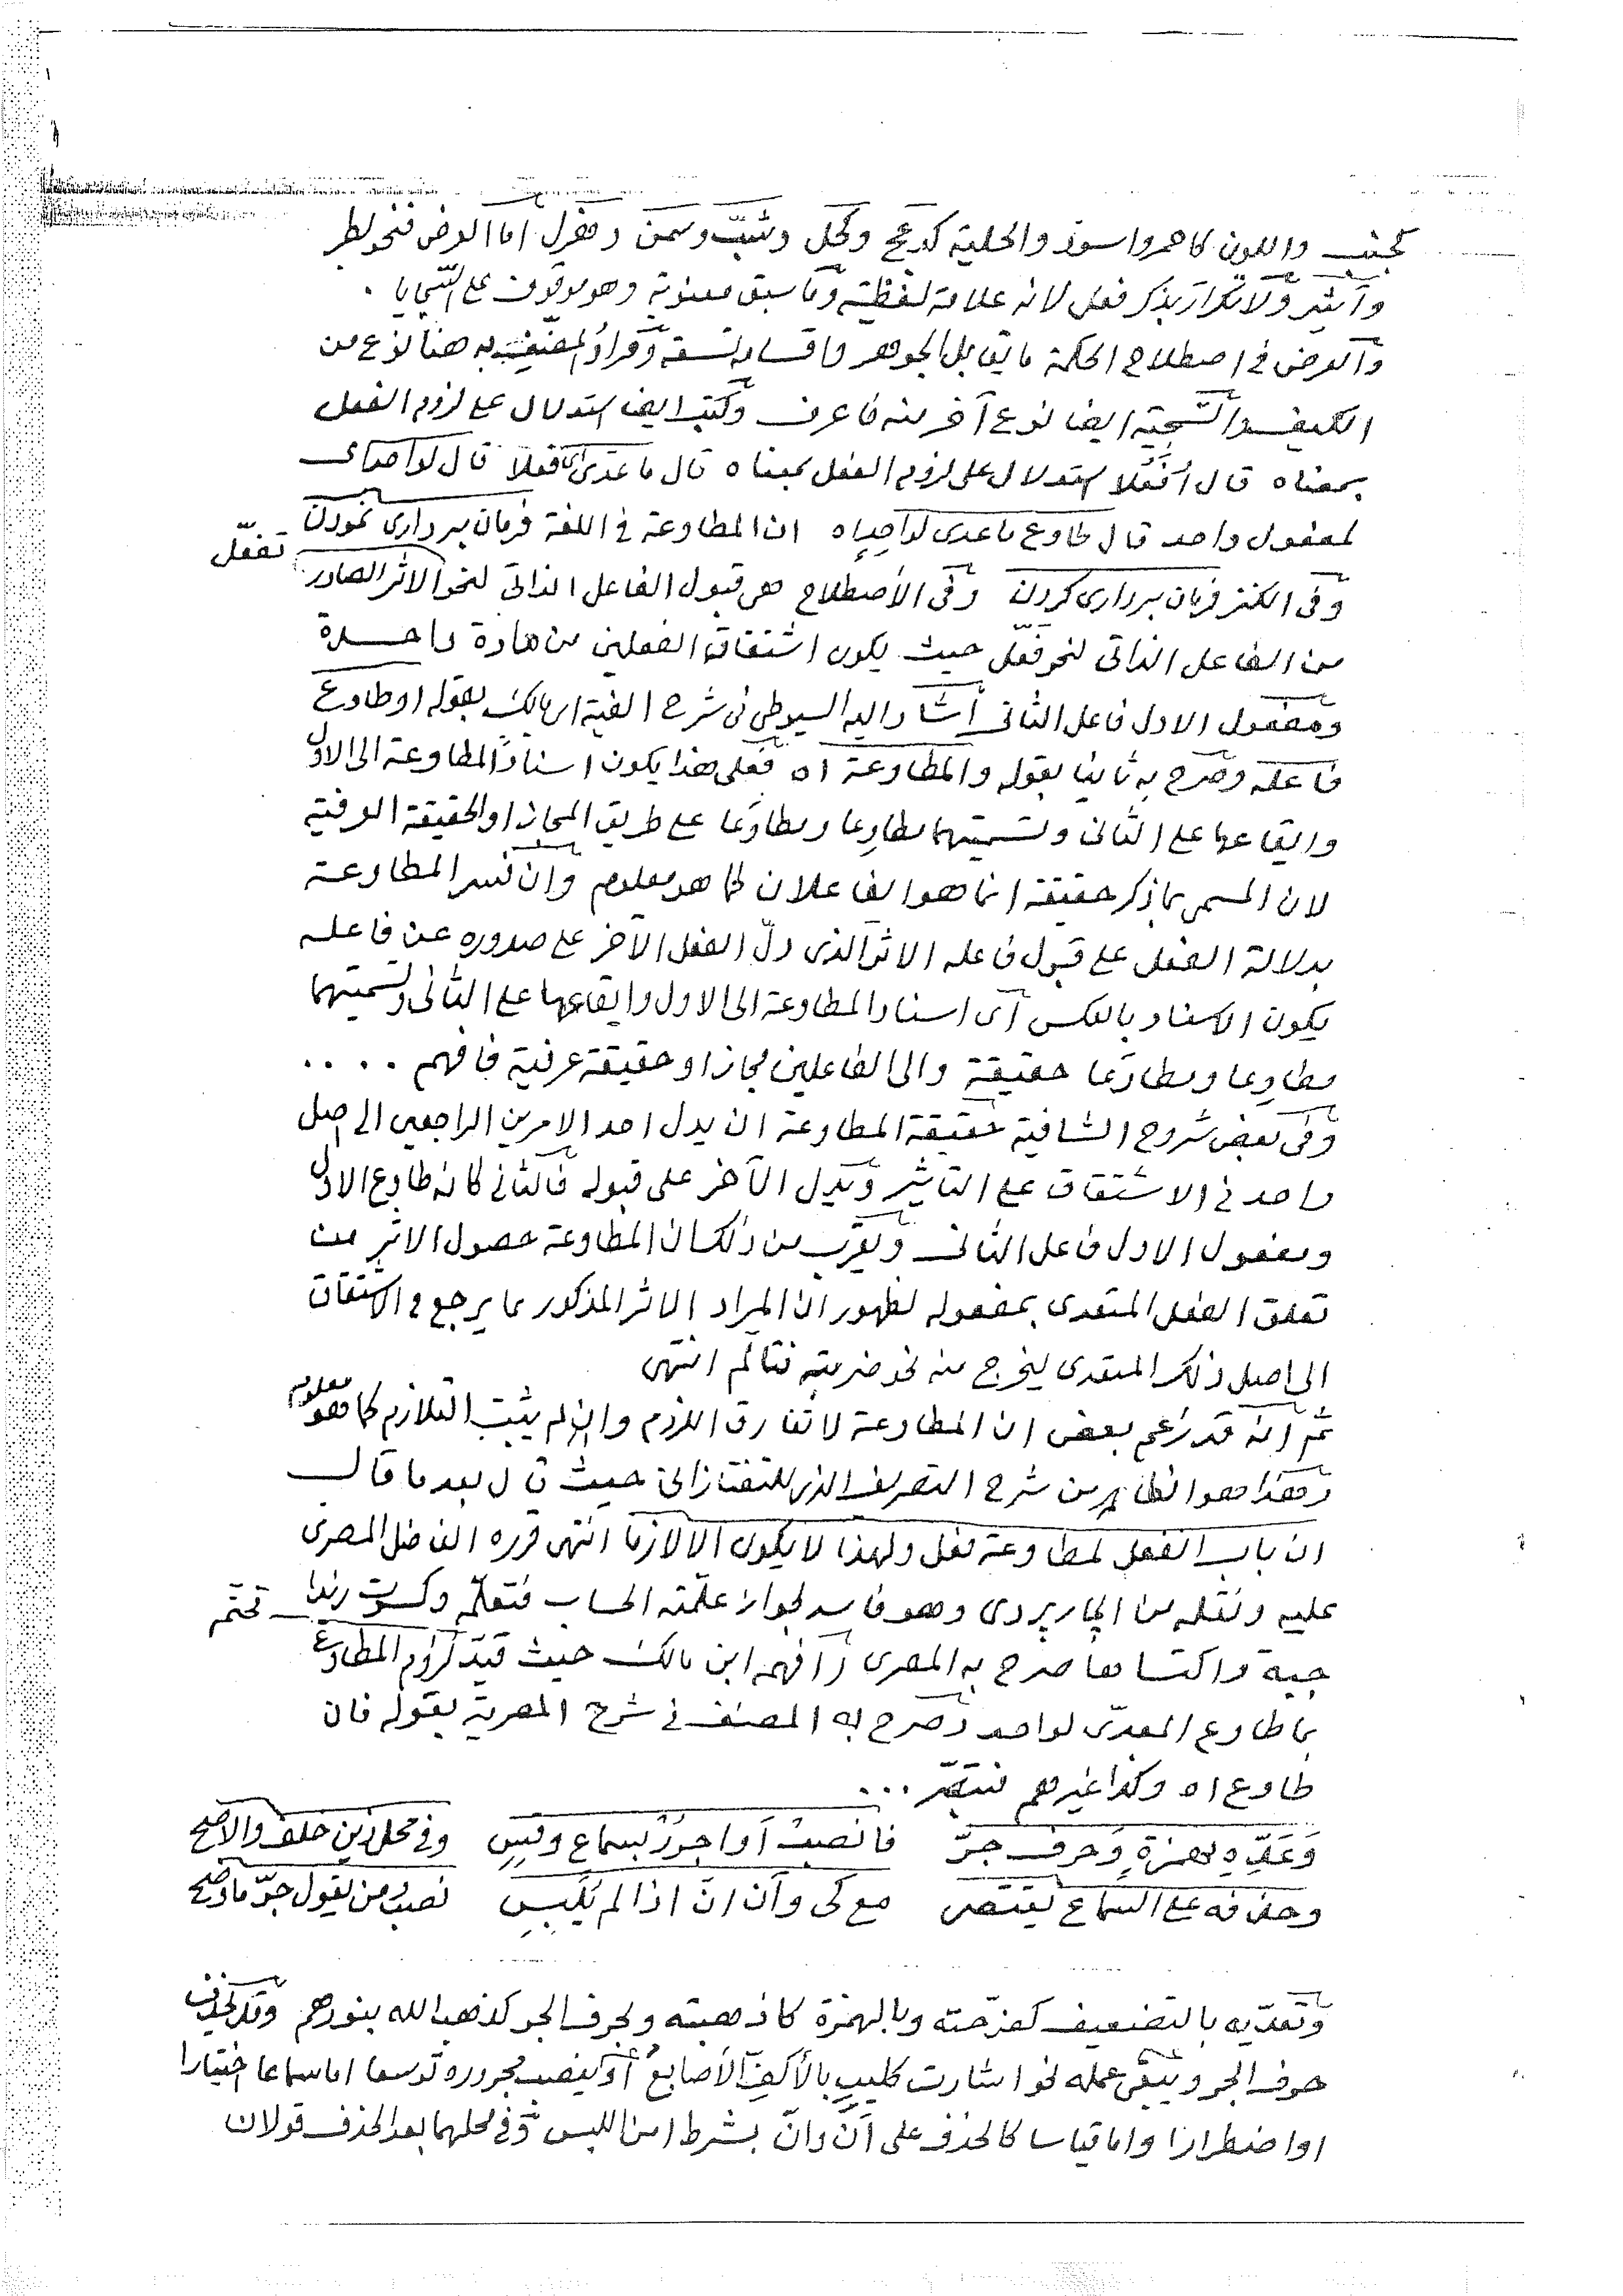 كجنب واللون كاحمر واسود والحلية كدعج وكحل وشبّ وسمن وهزل اما العرض فنحو بطر
وأشِر ولا تكرار بذكر فعل لانه علامة لفظية وما سبق معنوية وهو موقوف على السجايا .
والعرض فى اصطلاح الحكمة ما يقابل الجوهر واقسامه تسعة ومراد المصنف به هنا نوع من
الكيف والسّجيّة ايضا نوع آخر منه فاعرف وكتب ايضا استدلال على لزوم الفعل
بمعناه قال أفعُلا استدلال على لزوم الفعل بمعناه قال ما عدى اى فعلا قال لواحد اى
لمفعول واحد قال طاوع ما عدى لواحد اه ان المطاوعة فى اللغة فرمان بردارى نمودن
وفى الكنز فرمان بردارى كردن وفى الاصطلاح هى قبول الفاعل الذاتى لنحو الاثر الصادر
تفعّل
من الفاعل الذاتى لنحو فعّل حيث يكون اشتقاق الفعلين من مادة واحدة
ومفعول الاول فاعل الثانى أشار اليه السيوطى فى شرح الفية ابن مالك بقوله او طاوع
فاعله وصرح به ثانيا بقوله والمطاوعة اه فعلى هذا يكون اسناد المطاوعة الى الاول
وايقاعها على الثانى وتسميتهما مطاوِعا ومطاوَعا على طريق المجاز او الحقيقة العرفية
لان المسمى بما ذكر حقيقة انما هو الفاعلان كما هو معلوم وان فسر المطاوعة
بدلالة الفعل على قبول فاعله الاثر الذى دلّ الفعل الآخر على صدوره عن فاعله
يكون الاسناد بالعكس أى اسناد المطاوعة الى الاول وايقاعها على الثانى وتسميتهما
مطاوِعا ومطاوَعا حقيقة والى الفاعلين مجازا او حقيقة عرفية فافهم ....
وفى بعض شروح الشافية حقيقة المطاوعة ان يدل احد الامرين الراجعين الى اصل
واحد فى الاشتقاق على التأثير ويدل الآخر على قبوله فالثانى كانه طاوع الاول
ومفعول الاول فاعل الثانى ويقرب من ذلك ان المطاوعة حصول الاثر من
تعلق الفعل المتعدى بمفعوله لظهور ان المراد الاثر المذكور بما يرجع فى الاشتقاق
الى اصل ذلك المتعدى ليخرج منه نحو ضربته فتألّم انتهى
ثم انه قد زعم بعض ان المطاوعة لا تفارق اللزوم وان لم يثبت التلازم كما هو معلوم
وهذا هو الظاهر من شرح التصريف الذى للتفتازانى حيث قال بعد ما قال
ان باب انفعل لمطاوعة فعل ولهذا لا يكون الا لازما انتهى قرره الفاضل المصرى
عليه ونقله من الجاربردى وهو فاسد لجواز علّمته الحساب فتعلّمه وكسوت زيدا
جبة فاكتساها صرح به المصرى وأفهمه ابن مالك حيث قيّد لزوم المطاوع
بما طاوع المعدّى لواحد وصرح به المصنف فى شرح المصرية بقوله فان
طاوع اه وكذا غيرهم فتبصّر ...
وَعَدِّهِ بهمزةٍ وَحرف جرّ فانصب أو اجرُر بسماع وقِسِ وفى محل ذين خلف والاصح
وحذفه على السماع يقتصر مع كى وأن انّ اذا لم يَلبِسِ نصب ومن يقول جرّ ما وضح
وتعدّيه بالتضعيف كفرّحته وبالهمزة كاذهبته وبحرف الجر كذهب الله بنورهم وقد يحذف
حرف الجر ويبقى عمله نحو اشارت كليبٍ بالأكفّ الأصابعُ أو ينصب مجروره توسعا اما سماعا اختيارا
او اضطرارا واما قياسا كالحذف على أنّ وانّ بشرط امن اللبس وفى محلهما بعد الحذف قولان